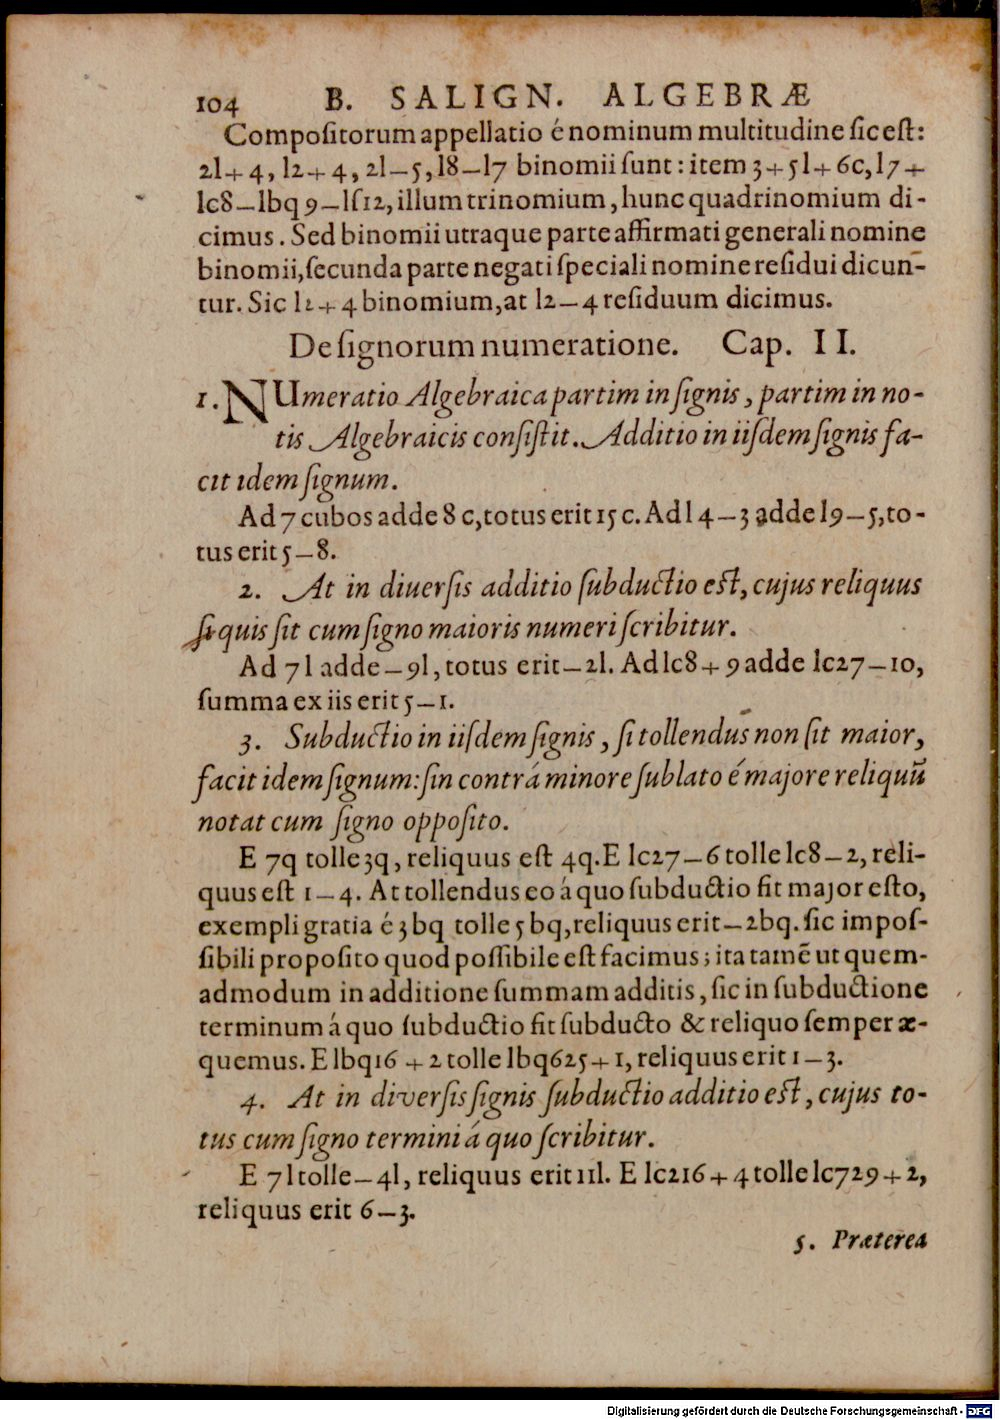 104 B. SALIGN. ALGEBRÆ
Compoſitorum appellatio é nominum multitudine ſic eſt:
2l+4, l2+4, 2l−5, l8−l7 binomii ſunt: item 3+5l+6c, l7+
lc8−lbq9−lſ12, illum trinomium, hunc quadrinomium di-
cimus. Sed binomii utraque parte affirmati generali nomine
binomii, ſecunda parte negati ſpeciali nomine reſidui dicun-
tur. Sic l2+4 binomium, at l2−4 reſiduum dicimus.
De ſignorum numeratione. Cap. II.
1. NUmeratio Algebraica partim in ſignis, partim in no-
tis Algebraicis conſiſtit. Additio in iiſdem ſignis fa-
cit idem ſignum.
Ad 7 cubos adde 8 c, totus erit 15 c. Ad l 4−3 adde l9−5, to-
tus erit 5−8.
2. At in diuerſis additio ſubductio eſt, cujus reliquus
ſi quis ſit cum ſigno maioris numeri ſcribitur.
Ad 7 l adde −9l, totus erit −2l. Ad lc8+9 adde lc27−10,
ſumma ex iis erit 5−1.
3. Subductio in iiſdem ſignis, ſi tollendus non ſit maior,
facit idem ſignum: ſin contrá minore ſublato é majore reliquū
notat cum ſigno oppoſito.
E 7q tolle 3q, reliquus eſt 4q. E lc27−6 tolle lc8−2, reli-
quus eſt 1−4. At tollendus eo á quo ſubductio fit major eſto,
exempli gratia é 3 bq tolle 5 bq, reliquus erit −2bq. ſic impoſ-
ſibili propoſito quod poſſibile eſt facimus; ita tamē ut quem-
admodum in additione ſummam additis, ſic in ſubductione
terminum á quo ſubductio fit ſubducto & reliquo ſemper æ-
quemus. E lbq16+2 tolle lbq625+1, reliquus erit 1−3.
4. At in diverſis ſignis ſubductio additio eſt, cujus to-
tus cum ſigno termini á quo ſcribitur.
E 7 l tolle −4l, reliquus erit 11l. E lc216+4 tolle lc729+2,
reliquus erit 6−3.
5. Præterea
Digitalisierung gefördert durch die Deutsche Forschungsgemeinschaft - DFG